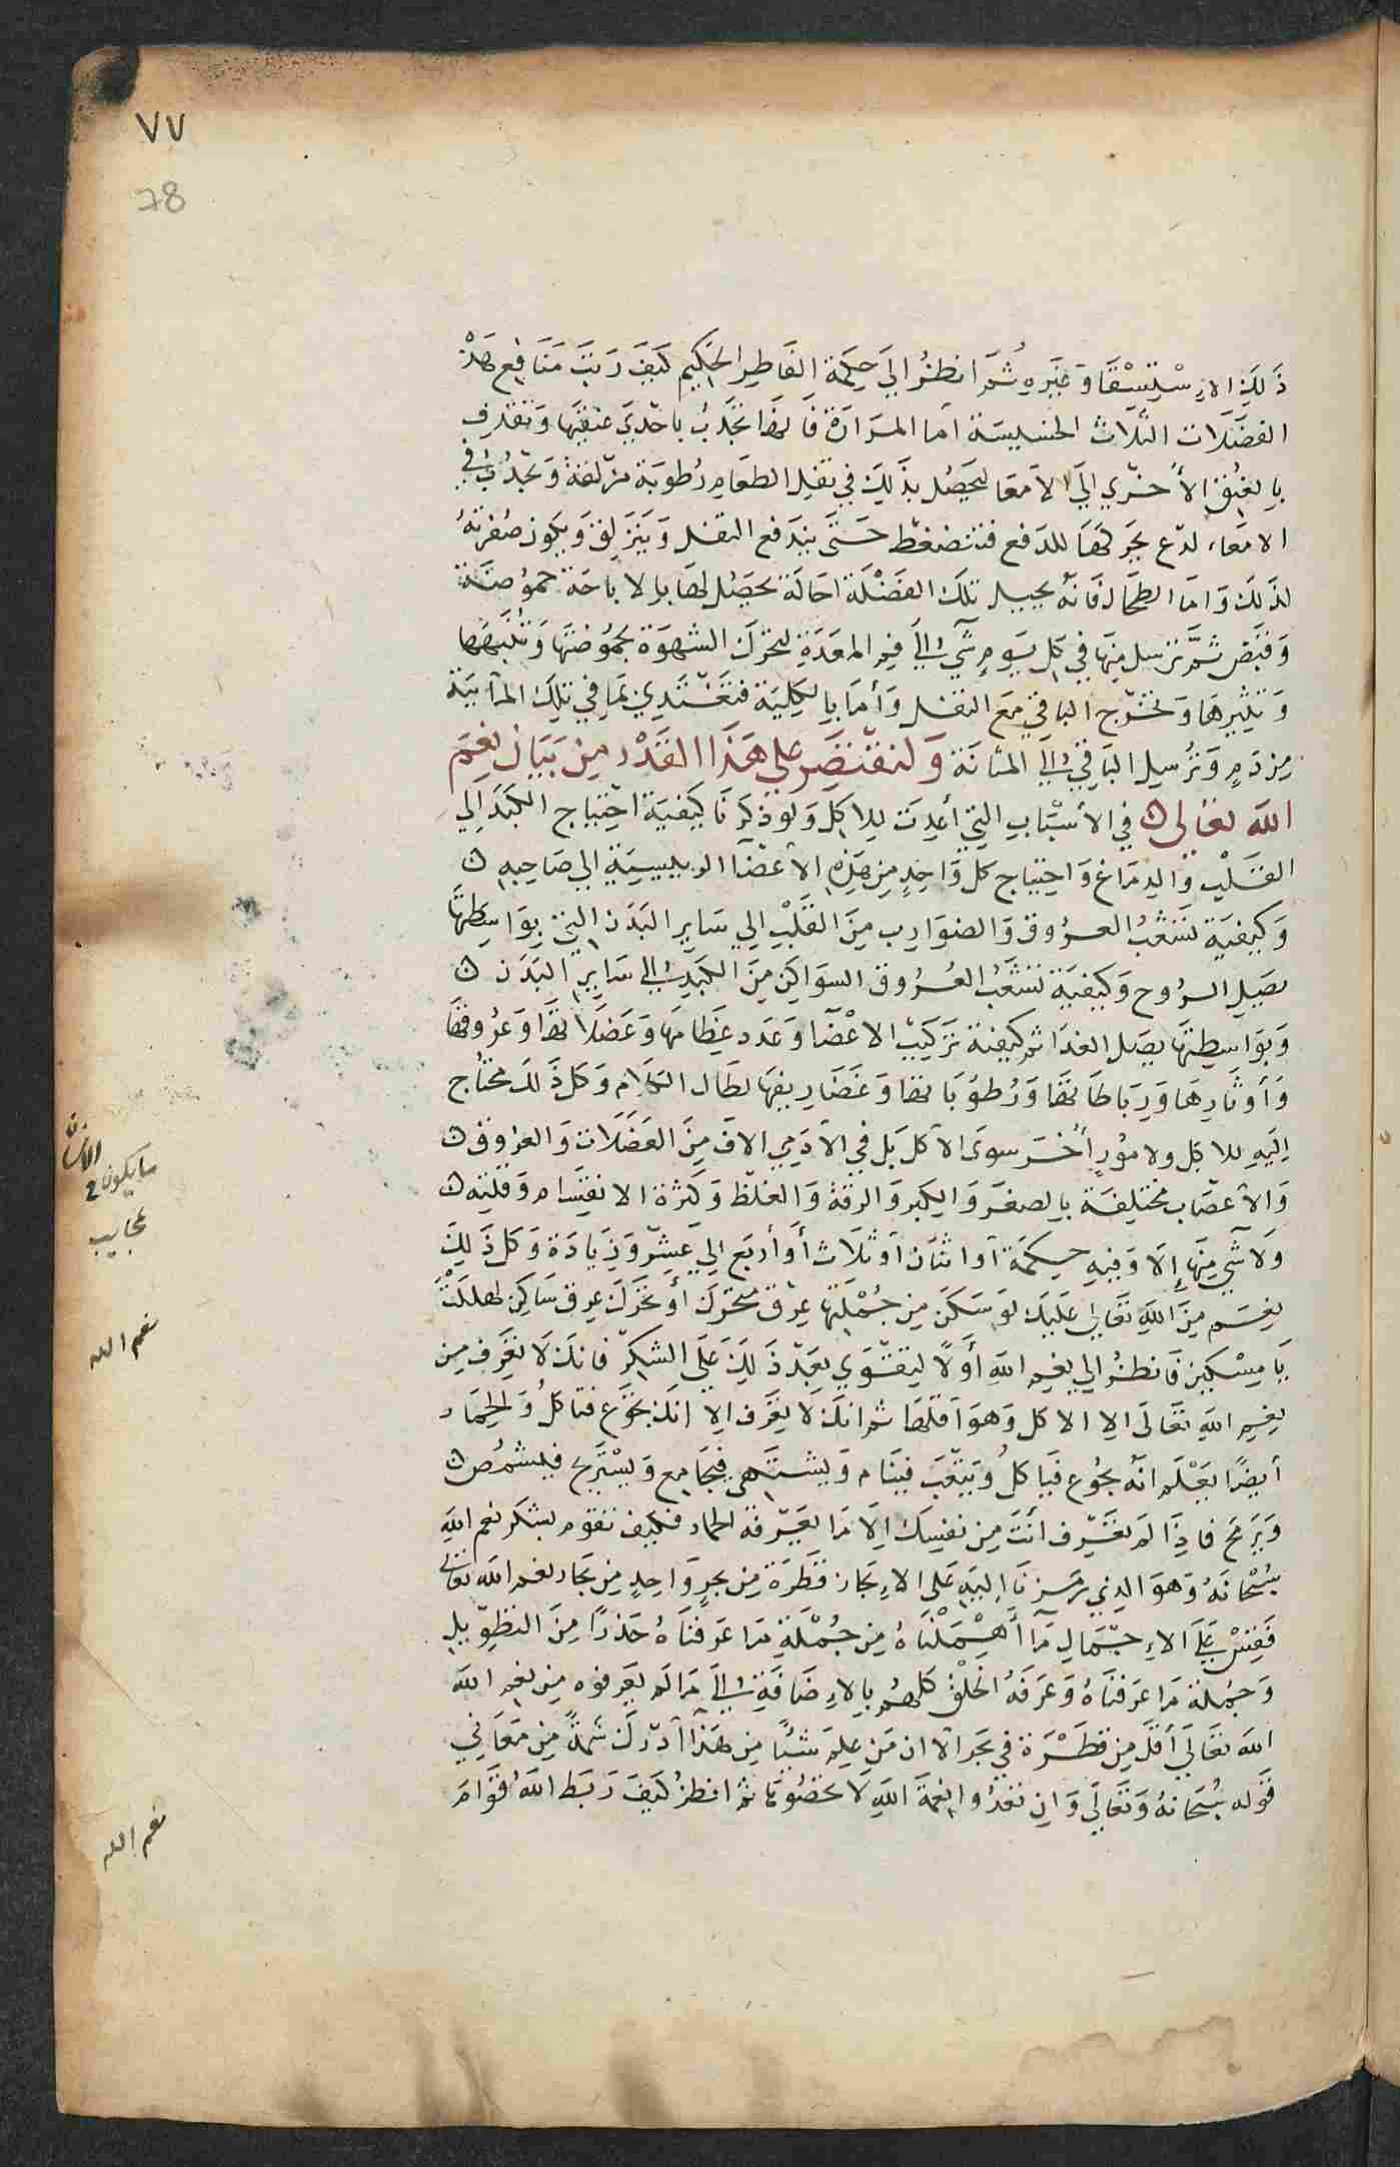 ٧٧
78
ذَلِكَ الاِسْتِسْقَا وَغَيْرِهِ ثُمَّ انظُرْ الِيَ حِكْمَة الفَاطِر الحَكِيم كَيْفَ رَتبَ مَنَافِع هَذِهِ
الفَضَلَات الثلَاث الخسِيسَة أما المرَارَة فَانهَا تجَذبُ باحَدِي عنقيهَا وَتقذِف
بالعُنُق الأخرَي الِيَ الاَمعَا ليَحصُل بذَلِكَ في ثفل الطعَامِ رُطوبَة مزلقة وَيَحدُث في
الامعَاء لدع يحَركهَا للدَفع فتنضغط حَتَى يندَفع الثفل وَيَنزَلِق وَيكون صُفرَتهُ
لذَلكَ وَامَا الطحَال فَانهُ يحيل تلكَ الفَضْلَة احَالَة يحصُل لهَا بالاباحَة حموُضَة
وَقَبض ثمَّ ترسل منهَا في كل يَومٍ شَي اليَ فم المعَدَة ليحَركَ الشهوَة بحمُوضتهَا وَيُنبّهَهَا
وَتثيرهَا وَتخرج الباقي مَع الثفل وَأمَا بالكليَة فتغتذِي بمَا في تلِكَ المآئيَة
مِن دَمٍ وَتُرسِل البَاقي اليَ المثانَة وَلنقتَصِر علي هَذَا القَدْر مِن بَيَان نِعَم
الله تعَالى ن في الأسْبَابِ التي أعِدَت للاكل وَلو ذكرنَا كَيفيَة احْتياج الكبَد اِلي
القلْب وَالدِمَاغ وَاحتيَاج كل وَاحِدٍ مِن هَذِه الاَعضَآ الريسِيَة إلي صَاحِبه ن
وَكيفيَة تشَعُّب العرُوق وَالضوَارِب مِنَ القَلْبِ اِلي سَاير البَدَن التي بِوَاسِطتهَا
يصَل الرُوح وَكيفيَة تشعُّب العُرُوق السوَاكِن مِنَ الكبِد اليَ سَايرِ البَدَن ن
وَبوَاسِطتهَا يصَل الغذا ثم كيفيَة تركيبُ الاعْضَآ وَعَدد عِظَامهَا وَعَضَلاَتهَا وَعرُوقهَا
وَأوتَارِهَا وَرِبَاطَاتهَا وَرُطوُبَاتهَا وَغَضَاريفهَا لطَال الكلام وَكل ذَلكَ محتَاج
اِليَهِ للاكل ولامورٍ أخَر سوَى الآكل بَل في الآدَمِي الاف مِنَ العَضَلات وَالعرُوق ن
وَالأعصَاب مختلِفة بالصغَر وَالكبر وَالرقة وَالغلظ وَكثرة الانقسَام وَقلته ن
وَلاشَي منهَا إلا وَفيهِ حِكمَة أو اثنَان أو ثلَاث أو أربَع اِلي عَشَر وَزيادَة وَكل ذَلِكَ
نِعَم مِنَ اللهِ تعَالي عَليكَ لوَ سَكَن مِن جُمْلَتهَا عِرْق متحَرك أو تحَرَك عِرق سَاكِن لهلَكْتَ
يَا مِسْكين فَانظرُ الي نِعَم اللهِ أوَلاً لتقوَي بَعدَ ذَلِكَ عَلَى الشكر فانكَ لَا تعَرف مِن
نِعَم اللهِ تعَالَى الا الاكل وَهوَ اَقلهَا ثم انكَ لَا تعَرف اِلا انكَ تجَوُع فتاكُل وَالحِمَار
أيضًا يَعْلَم انهُ يجُوع فيَاكلُ وَيَتعَب فينَام وَيشتَهى فيجَامِع وَيَسْتَريح فيشمُص ن
وَيَرمَح فاِذَا لَم تعَرِف أنتَ مِن نفسِك اِلا مَا يَعَرفه الحمَار فكيف تقوم بشكر نعم الله
سُبْحَانَهُ وَهوَ الذِي رَمَزنَا اِليَهِ عَلى الاِيجَاز قطَرة مِن بحرٍ وَاحِدٍ مِن بحَار نعم الله تعَالي
فَقِسْ عَلَيَ الاِجْمَالِ مَآ أَهْمَلْنَاهُ مِن جُمْلَةِ مَا عَرَفنَاهُ حَذرًا مِنَ التطِوِيل
وَجُملة مَا عرَفنَاهُ وَعَرَفَهُ الخلْق كلهُم بالاِضَافَةِ اليَ مَا لَم يعَرفوه مِن نِعَم اللهِ
الله تعَالَي أقَل مِن قَطْرَة في بَحَر الا ان مَن عِلمَ شيئًا مِن هَذَا أدرَكَ شمةً مِن مَعَاني
قَوله سُبحَانهُ وَتعَالي وَان تعُدوا نِعمَةَ اللهِ لَا تحصُوهَا ثم انظرُ كَيفَ رَبَط اللهُ قوَامَ
الانسان
مايكون في
عجايب
نعم الله
نعم الله